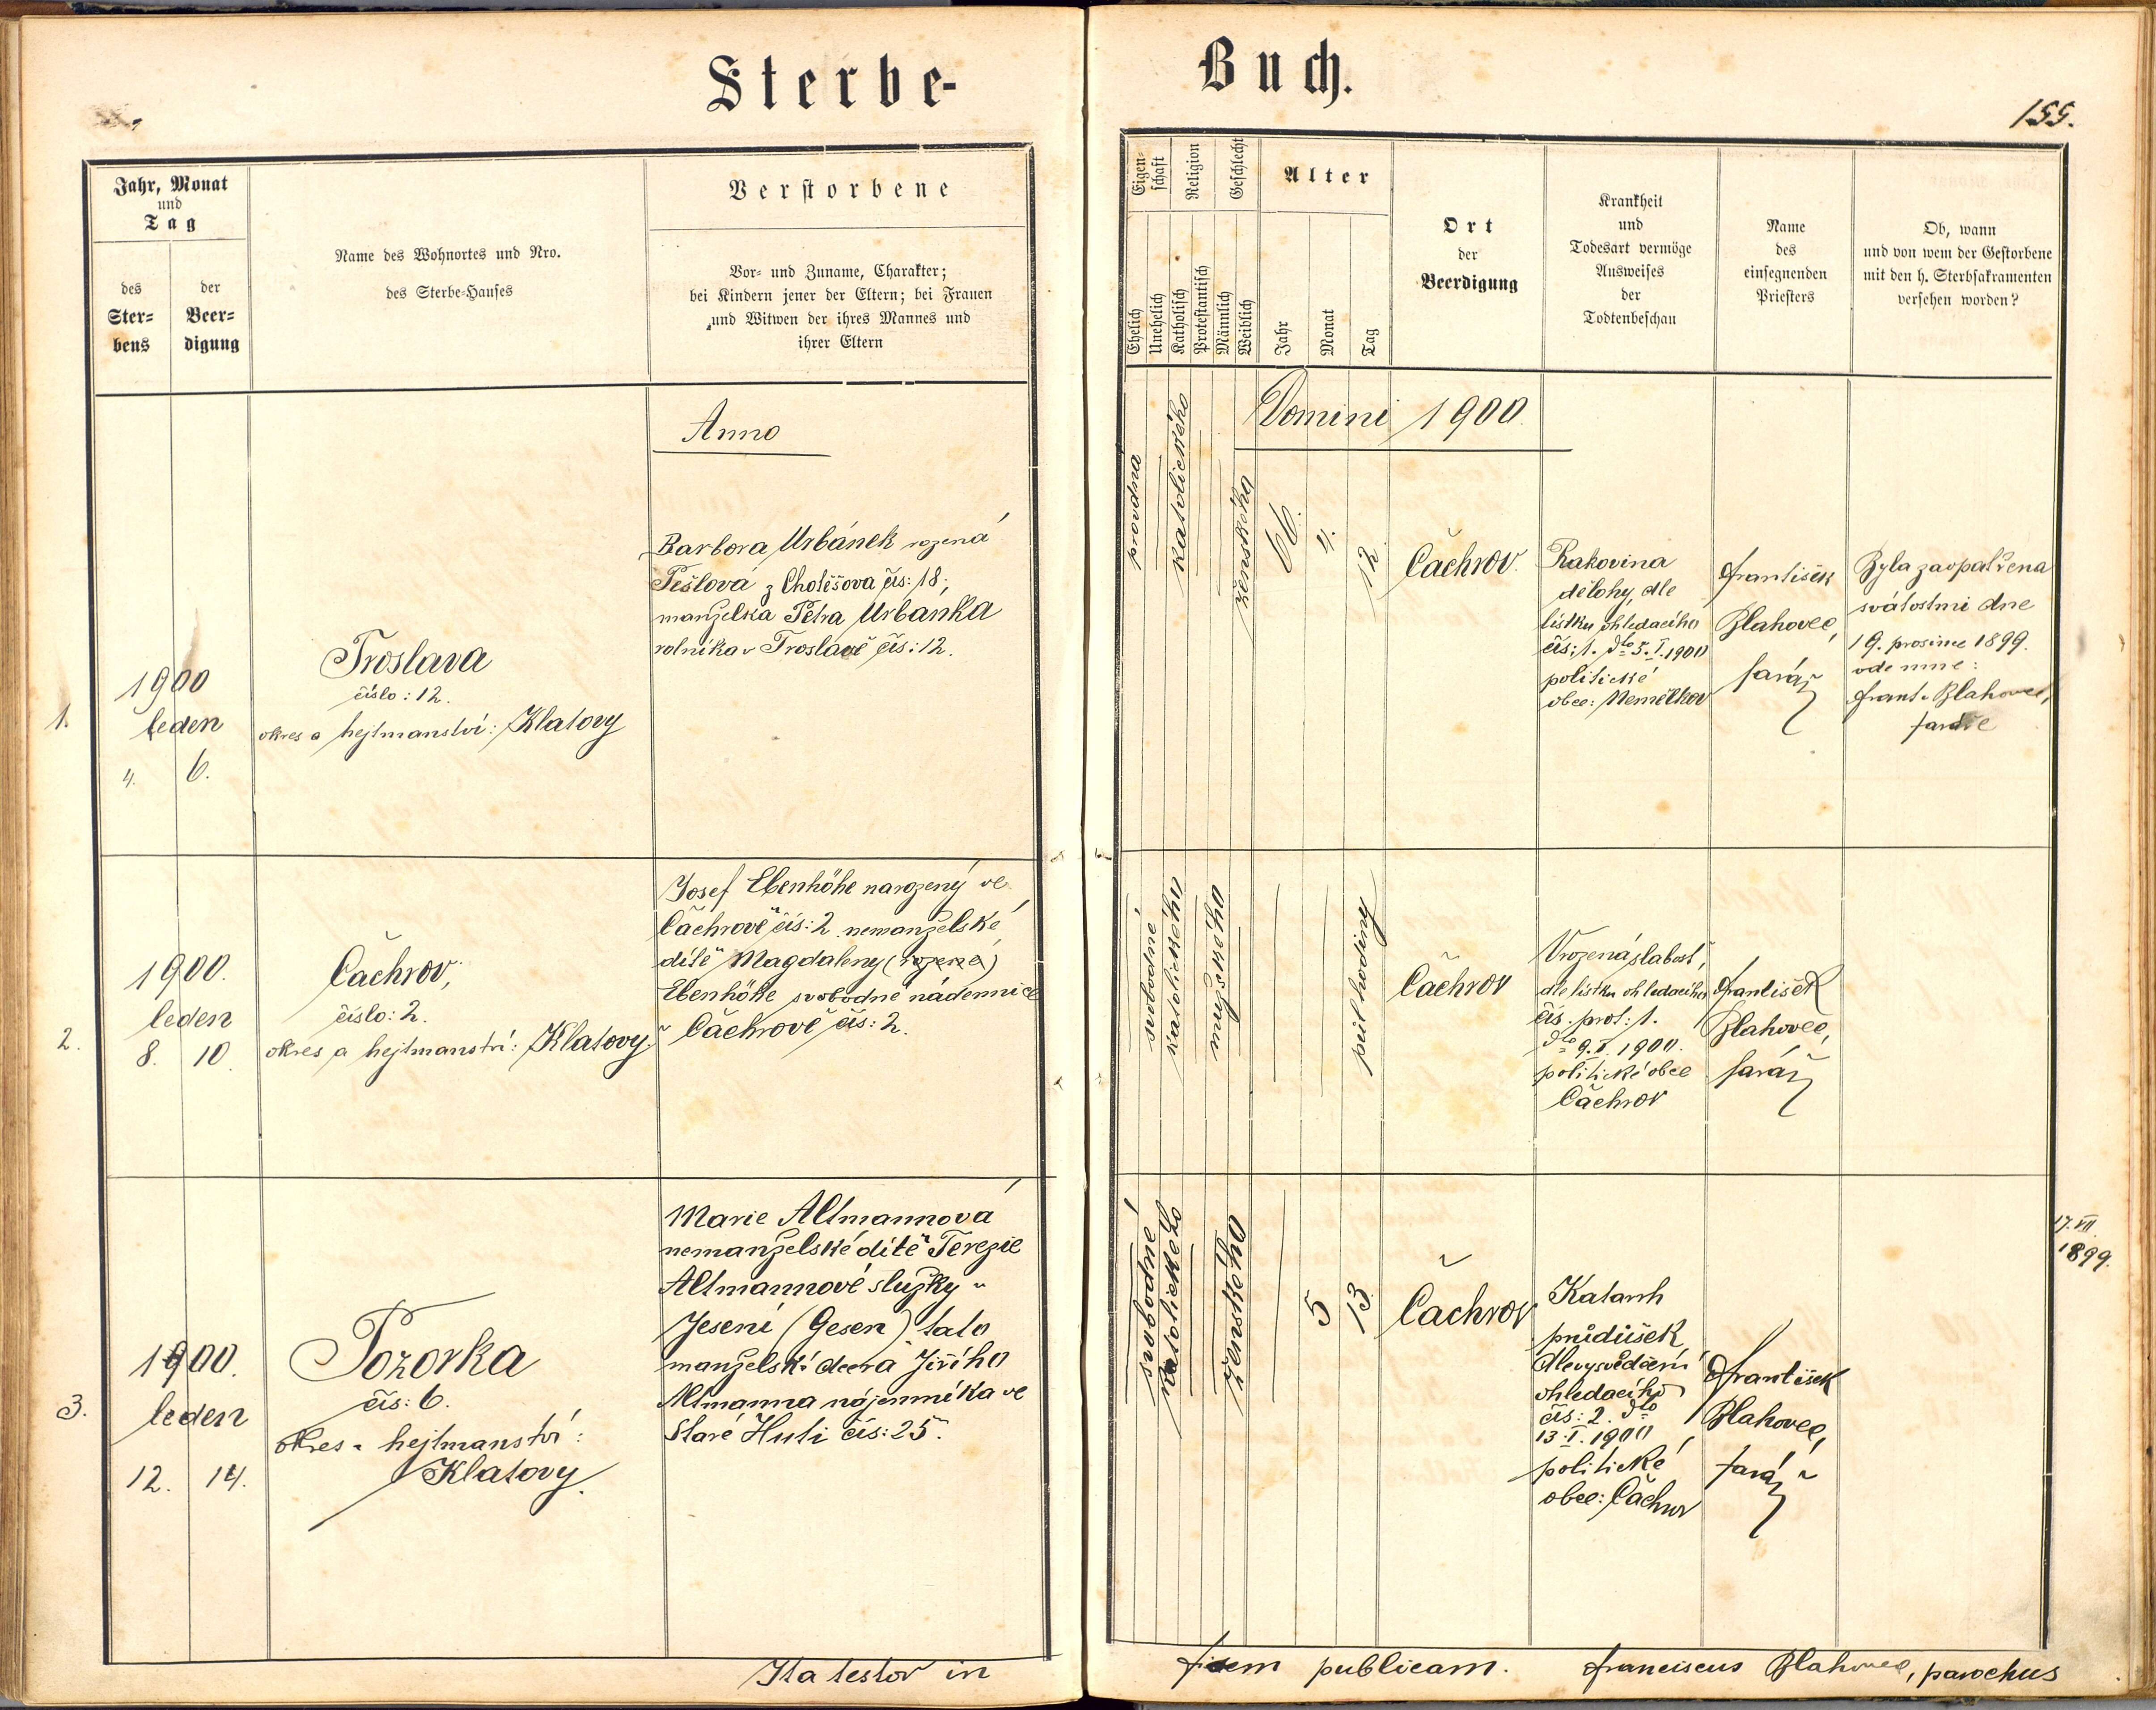 Sterbe-
Buch.
155.
Jahr, Monat
und
Tag
des
Ster-
bens
der
Beer-
digung
Name des Wohnortes und Nro.
des Sterbe-Hauses
Verstorbene
Vor- und Zuname, Charakter;
bei Kindern jener der Eltern; bei Frauen
und Witwen der ihres Mannes und
ihrer Eltern
Eigen-
schaft
Religion
Geschlecht
Ehelich
Unehelich
Katholisch
Protestantisch
Männlich
Weiblich
Alter
Jahr
Monat
Tag
Ort
der
Beerdigung
Krankheit
und
Todesart vermöge
Ausweises
der
Todtenbeschau
Name
des
einsegnenden
Priesters
Ob, wann
und von wem der Gestorbene
mit den h. Sterbsakramenten
versehen worden?
Anno
Domini 1900.
1.
1900
leden
4. 6.
Troslava
číslo: 12.
okres a hejtmanství: Klatovy
Barbora Urbánek rozená
Pešlová z Cholěšova čís: 18;
manželka Petra Urbánka
rolníka v Troslavě čís: 12.
provdna
katolického
ženského
66.
4.
12
Čachrov.
Rakovina
dělohy, dle
lístku ohledacího
čís: 1. dto 5. I. 1900
politické
obce: Nemělkov
František
Blahovec,
farář
Byla zaopatřena
svátostmi dne
19. prosince 1899.
ode mne:
Frant. Blahovec,
faráře
2.
1900.
leden
8. 10.
Čachrov,
číslo: 2.
okres a hejtmanství: Klatovy
Josef Ebenhöhe narozený ve
Čachrově čís: 2. nemanželské
dítě Magdaleny (rozené)
Ebenhöhe svobodné nádennice
v Čachrově čís: 2.
svobodné
katolického
mužského
půl hodiny
Čachrov
Vrozená slabost,
dle lístku ohledacího
čís. prot: 1.
dto 9. I. 1900.
politické obce
Čachrov
František
Blahovec,
farář
3.
1900.
leden
12. 14.
Pozorka
čís: 6.
okres a hejtmanství:
Klatovy.
Marie Altmannová
nemanželské dítě Terezie
Altmannové služky v
Jesení (Gesen) tato
manželská dcera Jiřího
Altmanna nájemníka ve
Staré Huti čís: 25.
svobodné
katolického
ženského
5
13.
Čachrov
Katarrh
průdušek
dle vysvědčení
ohledacího
čís: 2. dto
13. I. 1900
politické
obce: Čachrov
František
Blahovec,
farář
17. VII
1899.
Ita testor in
fidem publicam.
Franciscus Blahovec, parochus